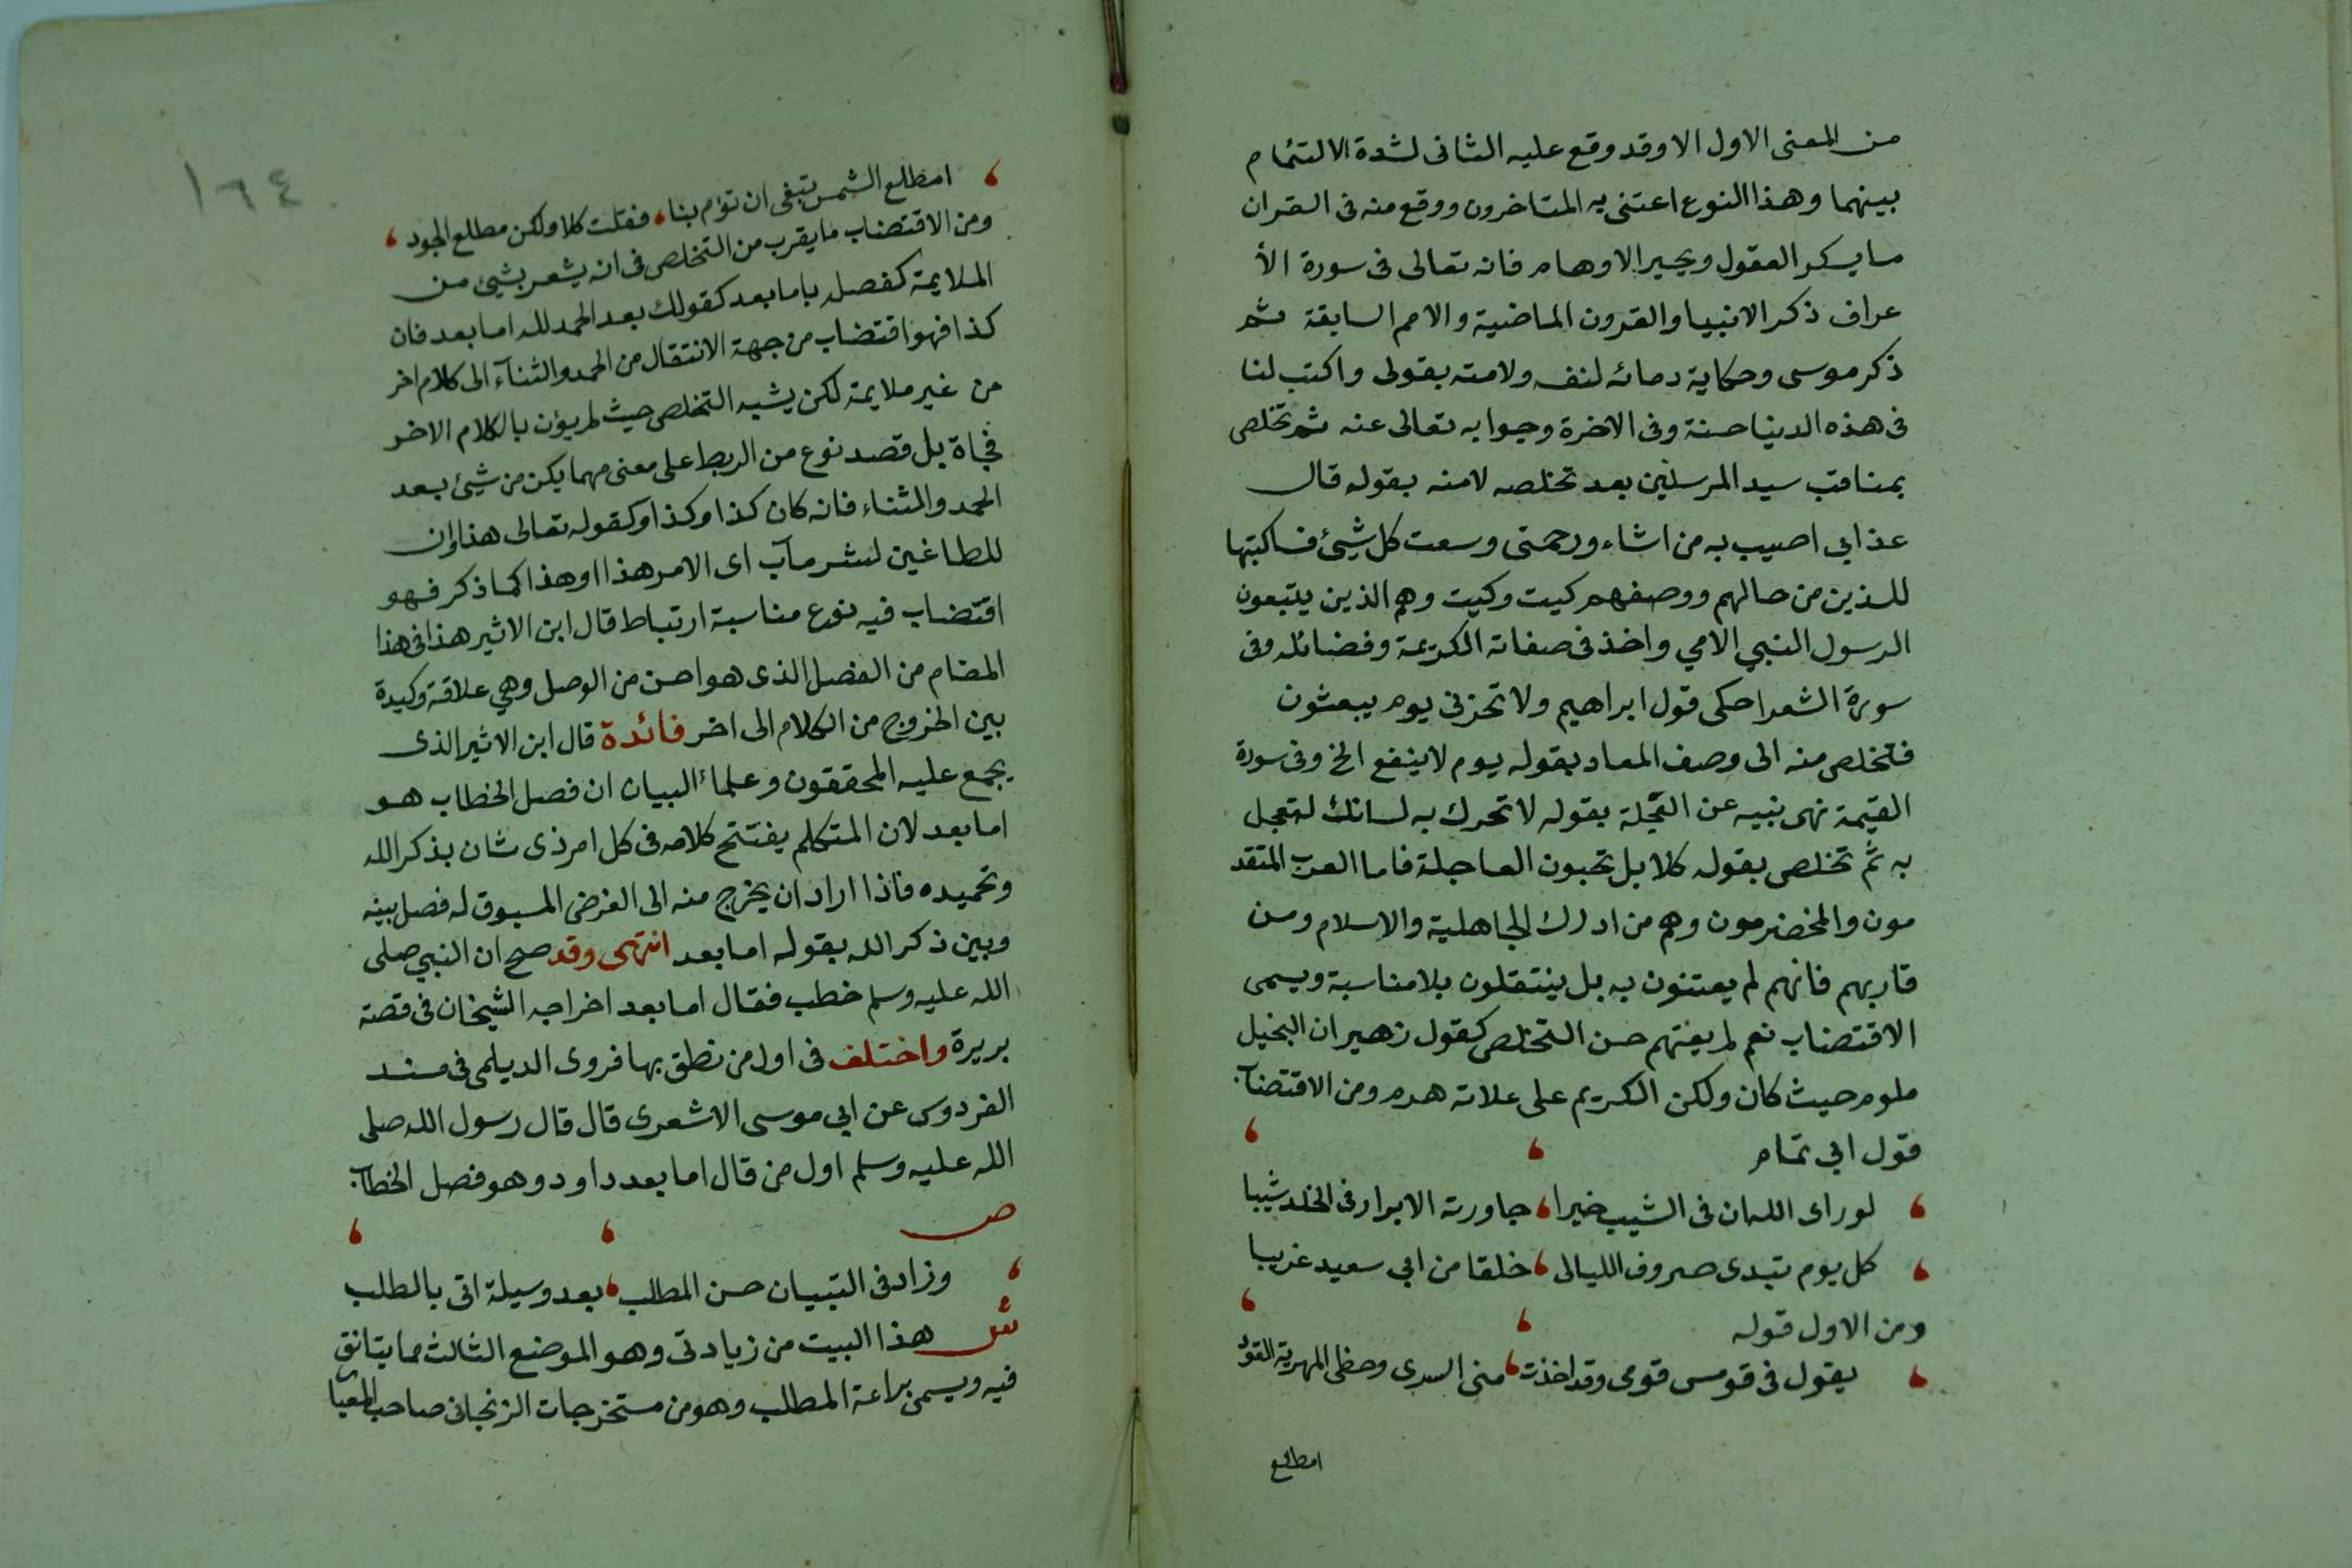 من المعنى الاول الا وقد وقع عليه الثانى لشدة الالتئام
بينهما وهذا النوع اعتنى به المتاخرون ووقع منه فى القران
ما يسكر العقول ويحير الاوهام فانه تعالى فى سورة الأ
عراف ذكر الانبيا والقرون الماضية والامم السابقة ثم
ذكر موسى وحكاية دعائه لنفسه ولامته بقولى واكتب لنا
فى هذه الدنيا حسنة وفى الاخرة وجوابه تعالى عنه ثم تخلص
بمناقب سيد المرسلين بعد تخلصه لامته بقوله قال
عذابي اصيب به من اشاء ورحمتى وسعت كل شيئ فساكتبها
للذين من حالهم ووصفهم كيت وكيت وهم الذين يتبعون
الرسول النبي الامي واخذ فى صفاته الكريمة وفضائله وفى
سورة الشعرا حكى قول ابراهيم ولا تحزنى يوم يبعثون
فتخلص منه الى وصف المعاد بقوله يوم لا ينفع الخ وفى سورة
القيمة نهى نبيه عن العجلة بقوله لا تحرك به لسانك لتعجل
به ثم تخلص بقوله كلا بل تحبون العاجلة فاما العرب المتقد
مون والمخضرمون وهم من ادرك الجاهلية والاسلام ومن
قاربهم فانهم لم يعتنون به بل ينتقلون بلا مناسبة ويسمى
الاقتضاب نعم لم يفتهم حسن التخلص كقول زهير ان البخيل
ملوم حيث كان ولكن الكريم على علاته هرم ومن الاقتضاب
قول ابي تمام
لو راى الله ان فى الشيب خيرا، جاورته الابرار فى الخلد شيبا
كل يوم تبدى صروف الليالى، خلقا من ابي سعيد غريبا
ومن الاول قوله
يقول فى قومس قومى وقد اخذت، منى السرى وحظى المهرية القود
امطلع
١٦٤
امطلع الشمس تبغى ان توم بنا، فقلت كلا ولكن مطلع الجود،
ومن الاقتضاب ما يقرب من التخلص فى انه يشعر بشيئ من
الملايمة كفصله باما بعد كقولك بعد الحمد لله اما بعد فان
كذا فهو اقتضاب من جهة الانتقال من الحمد والثنآء الى كلام اخر
من غير ملايمة لكن يشبه التخلص حيث لم يؤت بالكلام الاخر
فجاة بل قصد نوع من الربط على معنى مهما يكن من شيئ بعد
الحمد والثناء فانه كان كذا وكذا وكقوله تعالى هذا وان
للطاغين لشر مآب اى الامر هذا او هذا كما ذكر فهو
اقتضاب فيه نوع مناسبة ارتباط قال ابن الاثير هذا فى هذا
المقام من الفصل الذى هو احسن من الوصل وهي علاقة وكيدة
بين الخروج من الكلام الى اخر فائدة قال ابن الاثير الذى
يجمع عليه المحققون وعلمائ البيان ان فصل الخطاب هو
اما بعد لان المتكلم يفتتح كلامه فى كل امر ذى شان بذكر الله
وتحميده فاذا اراد ان يخرج منه الى الغرض المسبوق له فصل بينه
وبين ذكر الله بقوله اما بعد انتهى وقد صح ان النبي صلى
الله عليه وسلم خطب فقال اما بعد اخراجه الشيخان فى قصة
بريرة واختلف فى اول من نطق بها فروى الديلمى فى مسند
الفردوس عن ابي موسى الاشعرى قال قال رسول الله صلى
الله عليه وسلم اول من قال اما بعد داود وهو فصل الخطاب
ص
وزاد فى التبيان حسن المطلب، بعد وسيلة اتى بالطلب
ش هذا البيت من زيادتى وهو الموضع الثالث مما يتانق
فيه ويسمى براعة المطلب وهو من مستخرجات الزنجانى صاحب المعيار